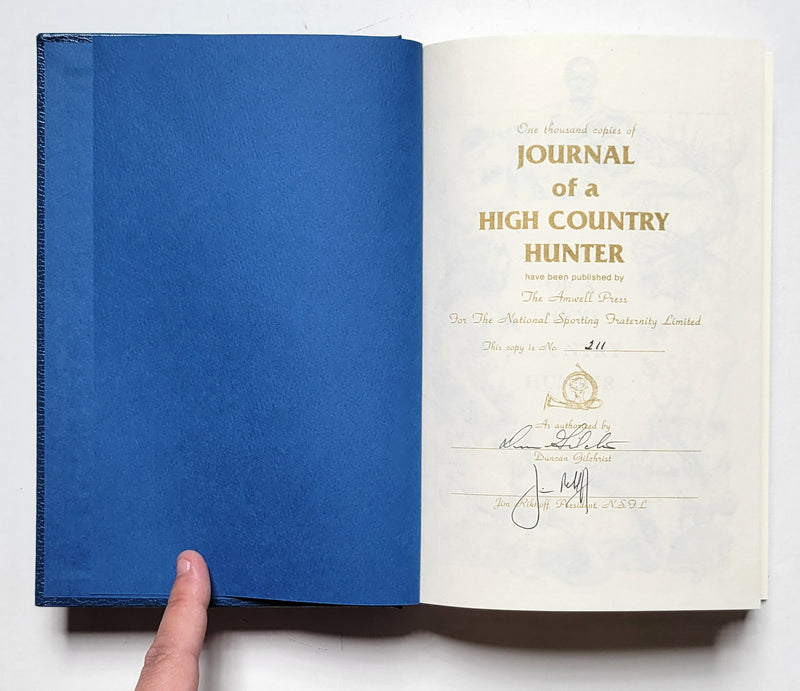 One thousand copies of
JOURNAL
of a
HIGH COUNTRY
HUNTER
have been published by
The Amwell Press
For The National Sporting Fraternity Limited
This copy is No. 211
As authorized by
Duncan Gilchrist
Jim Rikhoff
Jim Rikhoff, President, N.S.F.L.